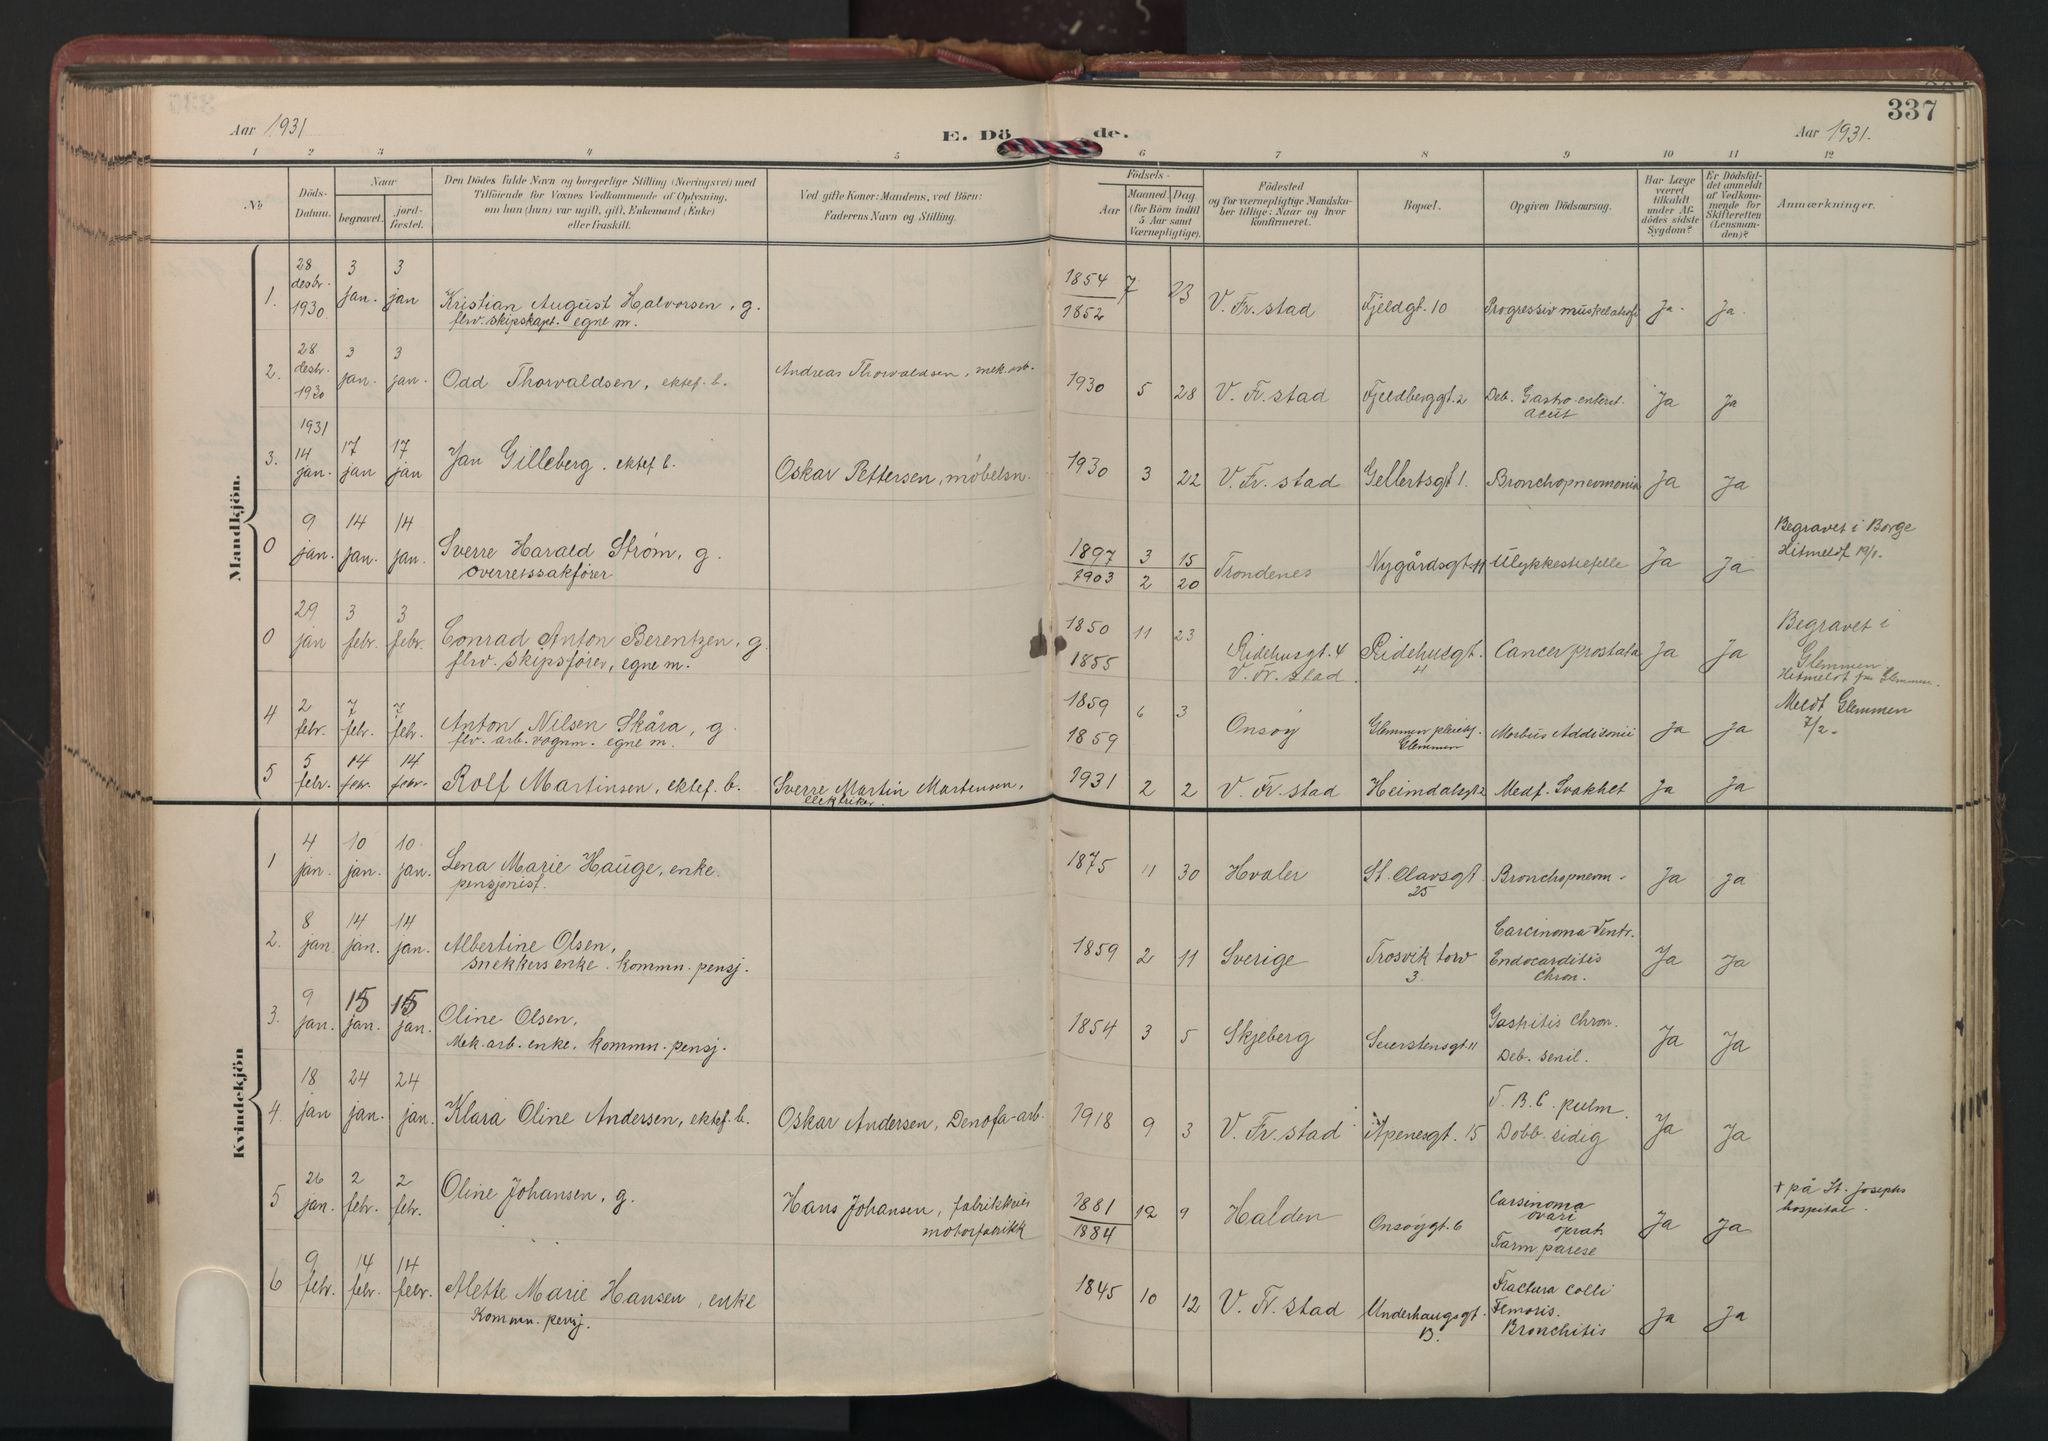 337
Aar 1931
E. Dö
de.
Aar 1931.
1 2 3 4 5 6 7 8 9 10 11 12
No
Döds-
Datum.
Naar
begravet.
jord-
festet.
Den Dödes fulde Navn og borgerlige Stilling (Næringsvei) med
Tilföiende for Voxnes Vedkommende af Oplysning,
om han (hun) var ugift, gift, Enkemand (Enke)
eller fraskilt.
Ved gifte Koner: Mandens, ved Börn:
Faderens Navn og Stilling.
Födsels-
Aar
Maaned.
Dag.
(for Börn indtil
5 Aar samt
Værnepligtige).
Födested
og for værnepligtige Mandskaber
tillige: Naar og hvor
konfirmeret.
Bopæl.
Opgiven Dödsaarsag.
Har Læge
været
tilkaldt
under Af-
dödes sidste
Sygdom?
Er Dödsfal-
det anmeldt
af Vedkom-
mende for
Skifteretten
(Lensman-
den)?
Anmærkninger.
Mandkjön.
1. 28 desbr. 1930 3 jan. 3 jan Kristian August Halvorsen, g.
fhv. skipskapt. egne m.
1854 1852 7 23 V. Fr. stad Fjeldgt. 10 Progressiv muskelatrofi Ja. Ja.
2. 28 desbr. 1930 3 jan. 3 jan. Odd Thorvaldsen, ektef. b. Andreas Thorvaldsen, mek. arb.
1930 5 28 V. Fr. stad Fjeldberggt. 2 Deb. Gastro-enterit.
acut Ja Ja
3. 1931 14 jan. 17 jan 17 jan Jan Gilleberg. ektef b. Oskar Pettersen, møbelsn.
1930 3 22 V. Fr. stad Gellertsgt 1. Bronchopneumonia Ja Ja
0 9 jan. 14 jan. 14 jan. Sverre Harald Strøm, g.
overretssakfører
1897 3 15
1903 2 20 Trondenes Nygårdsgt. 11 Ulykkestilfelle Ja Ja Begravet i Borge
Hitmeldt 19/1.
0 29 jan 3 febr. 3 febr. Conrad Anton Berentzen, g.
fhv. skipsfører, egne m.
1850 1855 11 23 Ridehusgt. 4
V. Fr. stad. Ridehusgt.
4 Cancer prostata Ja Ja Begravet i
Glemmen
Hitmeldt fra Glemmen.
4 2 febr. 7 febr. 7 febr. Anton Nilsen Skåra, g.
flv. arb. vognm. egne m.
1859 1859 6 3 Onsøy Glemmen pleiehj.
Glemmen Morbus Addisonii Ja Ja Meldt Glemmen
7/2.
5 5 febr. 14 febr. 14 febr. Rolf Martinsen, ektef. b. Sverre Martin Martensen,
elektriker.
1931 2 2 V. Fr. stad Heimdalsgt 2 Medf. Svakhet Ja Ja
Kvindekjön
1 4 jan. 10 jan. 10 jan. Lena Marie Hauge, enke.
pensjonist.
1875 11 30 Hvaler St. Olavsgt.
25 Bronchopneum. Ja Ja
2. 8 jan. 14 jan. 14 jan. Albertine Olsen,
snekkers enke. kommn. pensj.
1859 2 11 Sverige Trosvik torv
3. Carcinoma Ventr.
Endocarditis
Chron. Ja Ja
3. 9 jan. 15 jan. 15 jan. Oline Olsen,
Mek. arb. enke, kommn. pensj.
1854 3 5 Skjeberg Seierstensgt. 11 Gastritis Chron.
Deb. senil. Ja Ja
4. 18 jan 24 jan. 24 jan. Klara Oline Andersen, ektef. b. Oskar Andersen, Denofa-arb.
1918 9 3 V. Fr. stad Apenesgt. 15 T. B. C. pulm.
Dobb. sidig Ja Ja
5 26 jan. 2 febr. 2 febr. Oline Johansen, g. Hans Johansen,
motorfabrikk
1881 1884 12 9 Halden Onsøygt. 6 Carsinoma
ovari
oprat.
Tarm parese Ja Ja + på St. Josephs
hospital.
6 9 febr. 14 febr. 14 febr. Alette Marie Hansen, enke
Kommn. pensj.
1845 10 12 V. Fr. stad Underhaugsgt.
B. Fractura Colli
Femoris.
Bronchitis Ja Ja